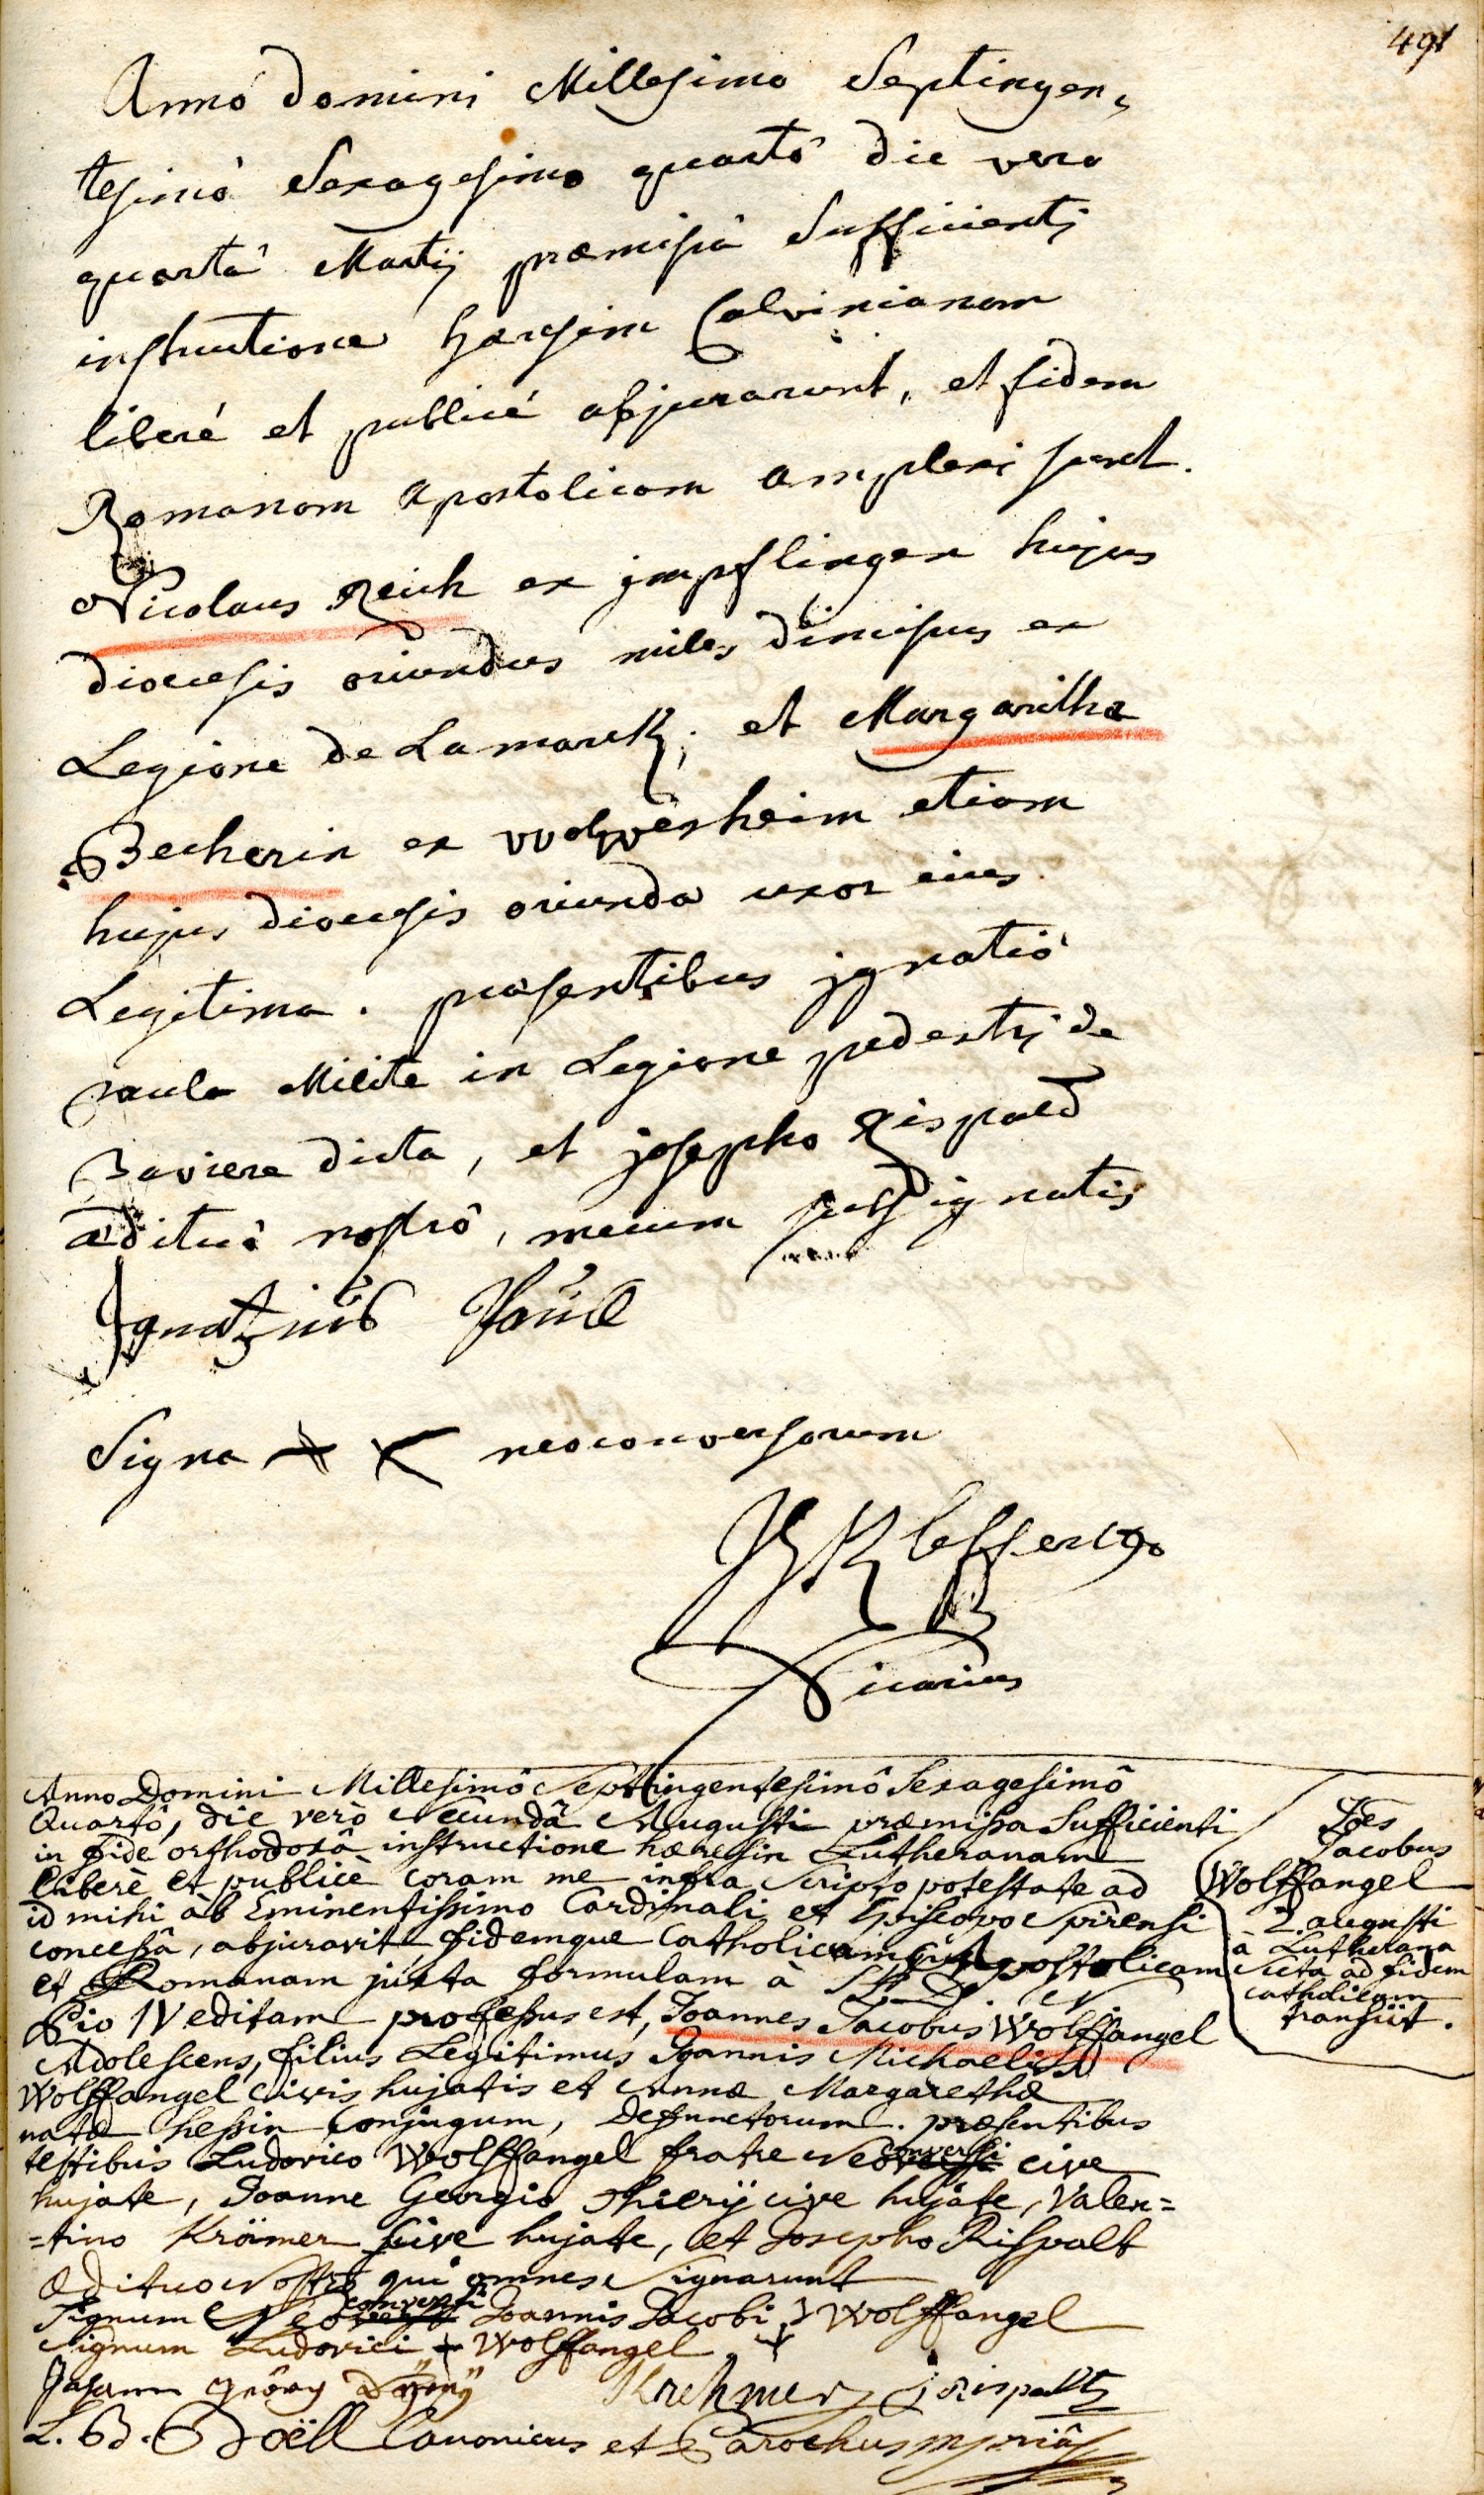 491
Anno domini Millesimo Septingen,
tesimò Sexagesimo quartô die vero
quartâ Martij præmissâ Sufficienti
instructione hæresim Calvinianam
liberé et publicé abjurarunt, et fidem
Romanam apostolicam amplexi sunt.
Nicolaus Reich ex jmpflingen hujus
dioecesis oriundus miles dimissus ex
Legione de Lamarck; et Margaritha
Becherin ex wolwesheim etiam
hujus dioecesis oriunda uxor eius
Legitima. præsentibus jgnatiò
paula Milite in Legione pedestri de
Baviere dicta, et josepho Rispald
ædituô nostrô, mecum subsignatis
Ignatzius Paul
Signa neoconversorum
Vicarius
Anno Domini Millesimô Septingentesimô Sexagesimô
Quartô, die verò Secundâ Augusti præmissa Sufficienti
in fide orthodoxâ instructione hæresin Lutheranam
liberè et publicè coram me infra Scripto potestate ad
id mihi àb Eminentissimo Cardinali et Episcopo Spirensi
concessâ, abjuravit fidemque Catholicam Apostolicam
et Romanam juxta formulam à SS. D. N
Pio IV editam professus est, Joannes Jacobus Wolffangel
Adolescens, filius Legitimus Joannis Michaelis
Wolffangel civis hujatis et Annæ Margarethæ
natæ hessin Conjugum, defunctorum. præsentibus
testibus Ludovico Wolffangel fratre Neo conversi cive
hujate, Joanne Georgio Thierÿ cive hujate, Valen=
=tino Krämer cive hujate, et Josepho Rispalt
Ædituo Nostro qui omnes Signarunt
Signum Neo conversi Joannis Jacobi Wolffangel
Signum Ludovici Wolffangel
Johann Geörg
Krehmer j rispalt
L. B. Boëll Canonicus et Parochus mpriâ
Joes
Jacobus
Wolffangel
2. augusti
à Lutherana
Secta ad fidem
catholicam
transiit.